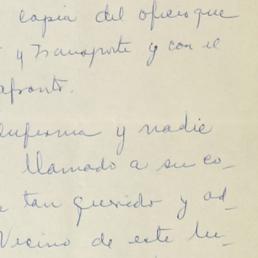 copia del oficio que
y Transporte y con el
afronto.
enferma y nadie
llamado a su co-
tan querido y ad-
Vecino de este lu-